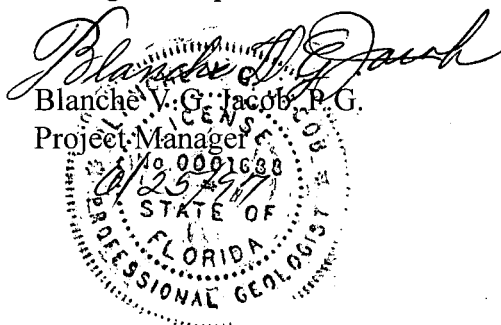 Blanche V. G. Jacob
Blanche V. G. Jacob, P.G.
Project Manager
LICENSE
No 0001638
6/25/97
STATE OF
FLORIDA
PROFESSIONAL GEOLOGIST